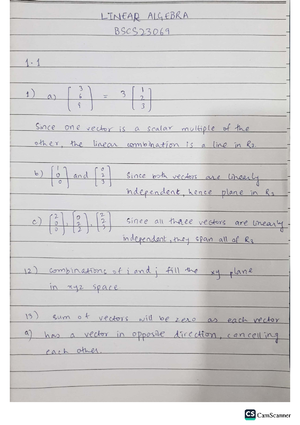 LINEAR ALGEBRA
BSCS23069
1.1
1) a) [3 6 9] = 3 [1 2 3]
Since one vector is a scalar multiple of the
other, the linear combination is a line in R3.
b) [1 0 0] and [0 2 3] Since both vectors are linearly
independent, hence plane in R3
c) [2 0 0], [0 2 2], [2 2 3] Since all three vectors are linearly
independent, they span all of R3
12) combinations of i and j fill the xy plane
in xyz space
13) sum of vectors will be zero as each vector
a) has a vector in opposite direction, cancelling
each other.
CS CamScanner